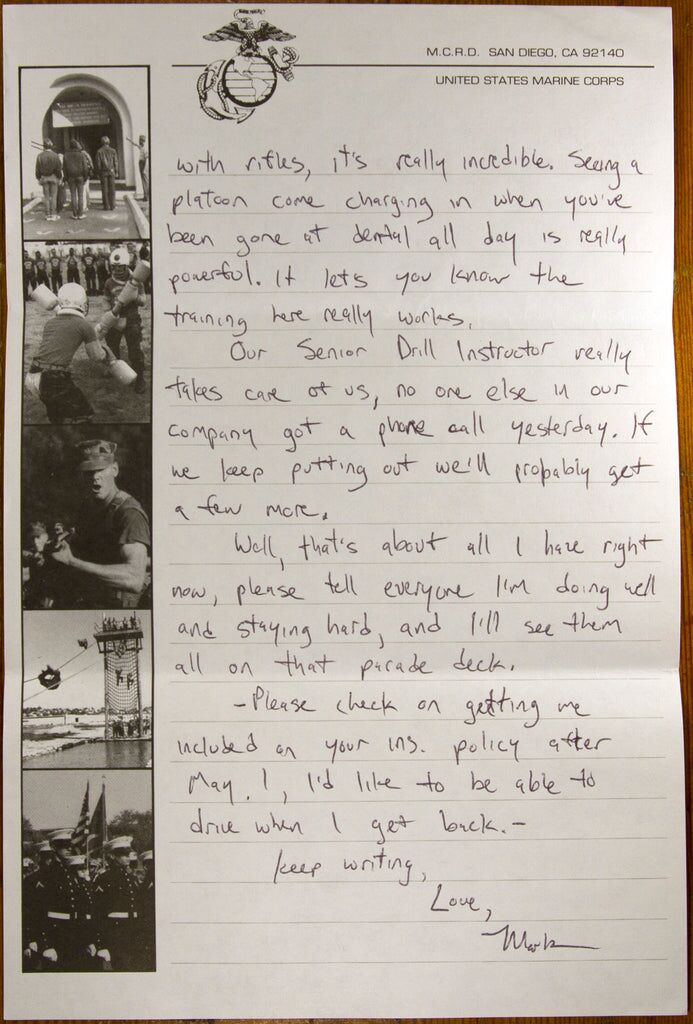 M.C.R.D. SAN DIEGO, CA 92140
UNITED STATES MARINE CORPS
with rifles, it's really incredible. Seeing a
platoon come charging in when you've
been gone at dental all day is really
powerful. It lets you know the
training here really works.
Our Senior Drill Instructor really
takes care of us, no one else in our
company got a phone call yesterday. If
we keep putting out we'll probably get
a few more.
Well, that's about all I have right
now, please tell everyone I'm doing well
and staying hard, and I'll see them
all on that parade deck.
-Please check on getting me
included on your ins. policy after
May. 1, I'd like to be able to
drive when I get back.-
Keep writing,
Love,
Mark